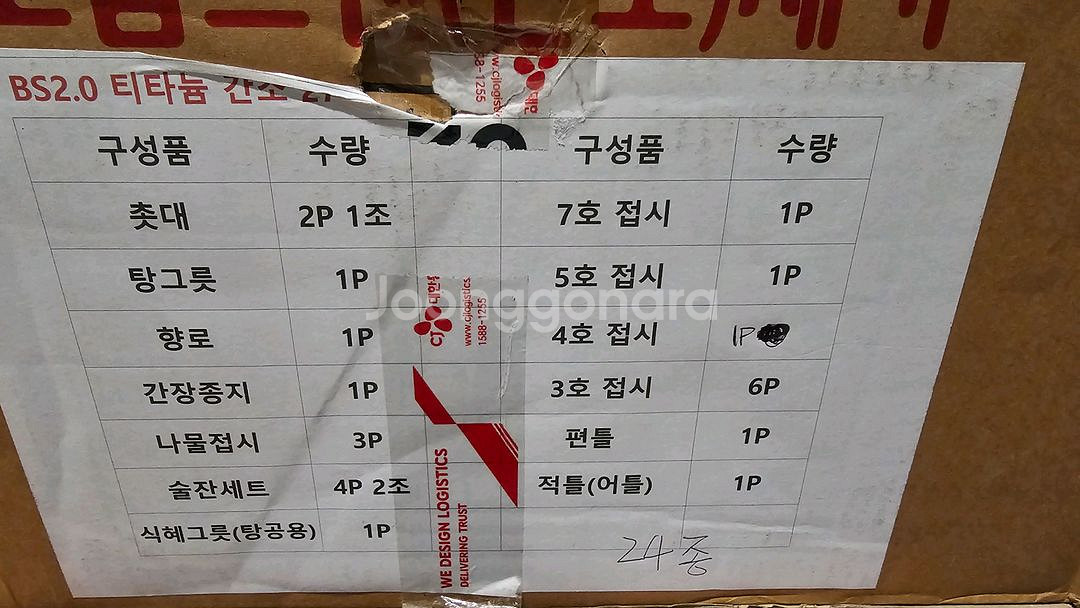 BS2.0 티타늄 간소
구성품 수량 구성품 수량
촛대 2P 1조 7호 접시 1P
탕그릇 1P 5호 접시 1P
향로 1P 4호 접시 1P
간장종지 1P 3호 접시 6P
나물접시 3P 편틀 1P
술잔세트 4P 2조 적틀(어틀) 1P
식혜그릇(탕공용) 1P
24종
CJ대한
www.cjlogistics.
1588-1255
WE DESIGN LOGISTICS
DELIVERING TRUST
8-1255
w.cjlogistics
대한
Joonggonara